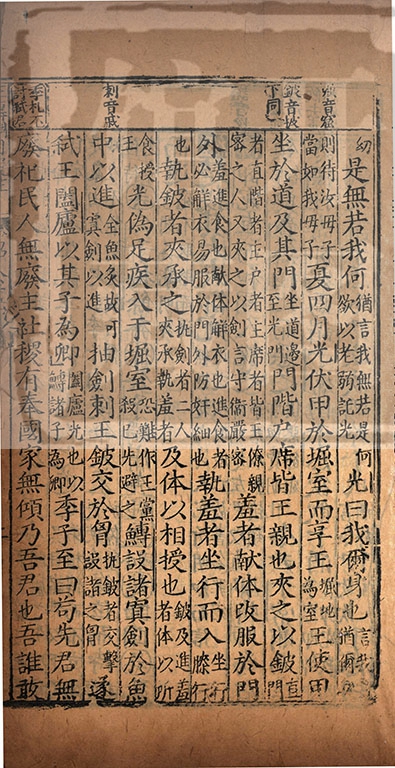 堀音窟
鈹音披
下同
刺音戚
季札不
幼是無若我何猶言我無若是何欲以老弱託光光曰我爾身也言我猶爾身
則待汝母子當如我母子夏四月光伏甲於堀室而享王堀地為室王使甲
坐於道及其門坐道邊至光門門階户席皆王親也夾之以鈹直門
者直階者主户者主席者皆王僚親密之人又夾之以劍言守衛嚴密羞者献体改服於門
外羞進食也献体解衣也進食者外必解衣易服於門外防奸細也執羞者坐行而入坐行膝行
也執鈹者夾承之執劍者二人夾承執羞者及体以相授也鈹及進羞者体以所
食授王光偽足疾入于堀室恐難作王黨殺已先避之鱄設諸寘劍於魚
中以進全魚炙故可寘劍以進抽劍刺王鈹交於胷執鈹者交擊設諸之胷遂
弑王闔廬以其子為卿闔廬光也以鱄諸子為卿季子至曰苟先君無
廢祀民人無廢主社稷有奉國家無傾乃吾君也吾誰敢